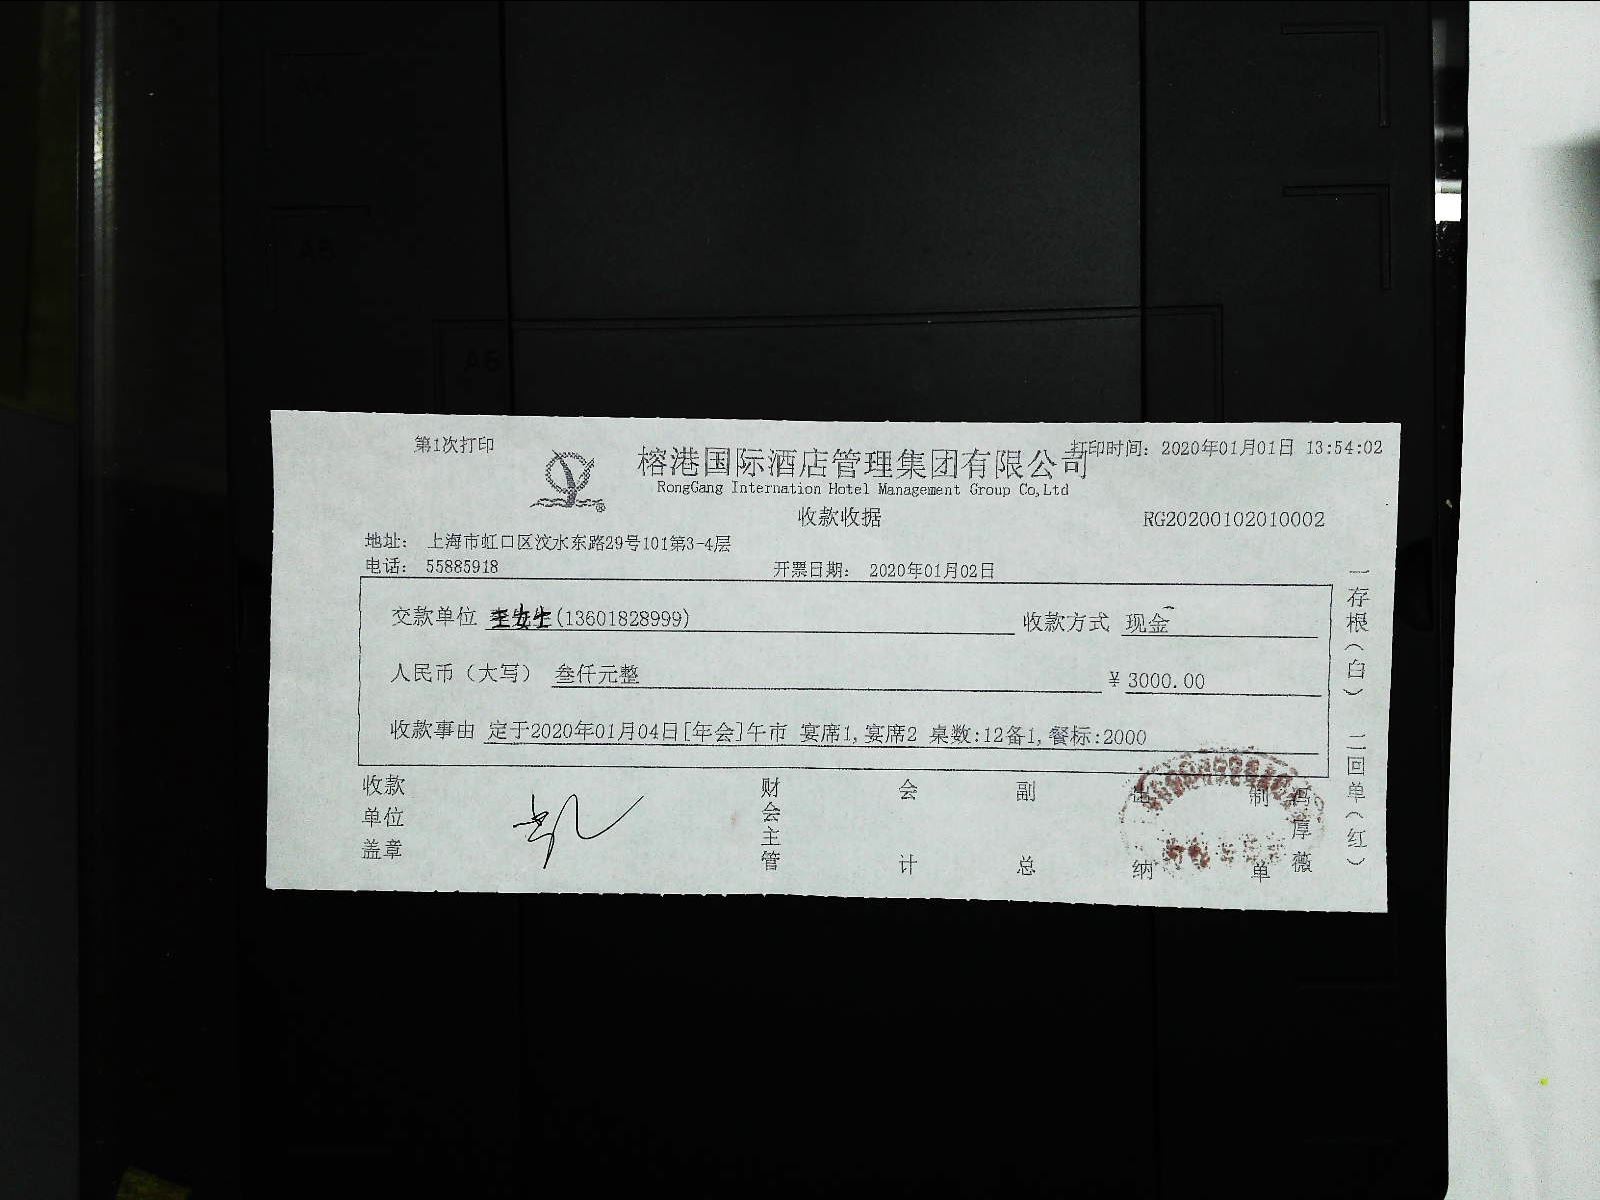 A5
A6
第1次打印
打印时间: 2020年01月01日 13:54:02
榕港国际酒店管理集团有限公司
RongGang Internation Hotel Management Group Co,Ltd
收款收据
RG20200102010002
地址: 上海市虹口区汶水东路29号101第3-4层
电话: 55885918
开票日期: 2020年01月02日
交款单位 (13601828999) 收款方式 现金
人民币(大写) 叁仟元整 ¥3000.00
收款事由 定于2020年01月04日[年会]午市 宴席1,宴席2 桌数:12备1,餐标:2000
收款单位盖章
财会主管
会计
副总
出纳
制单
冯厚薇
一存根(白) 二回单(红)